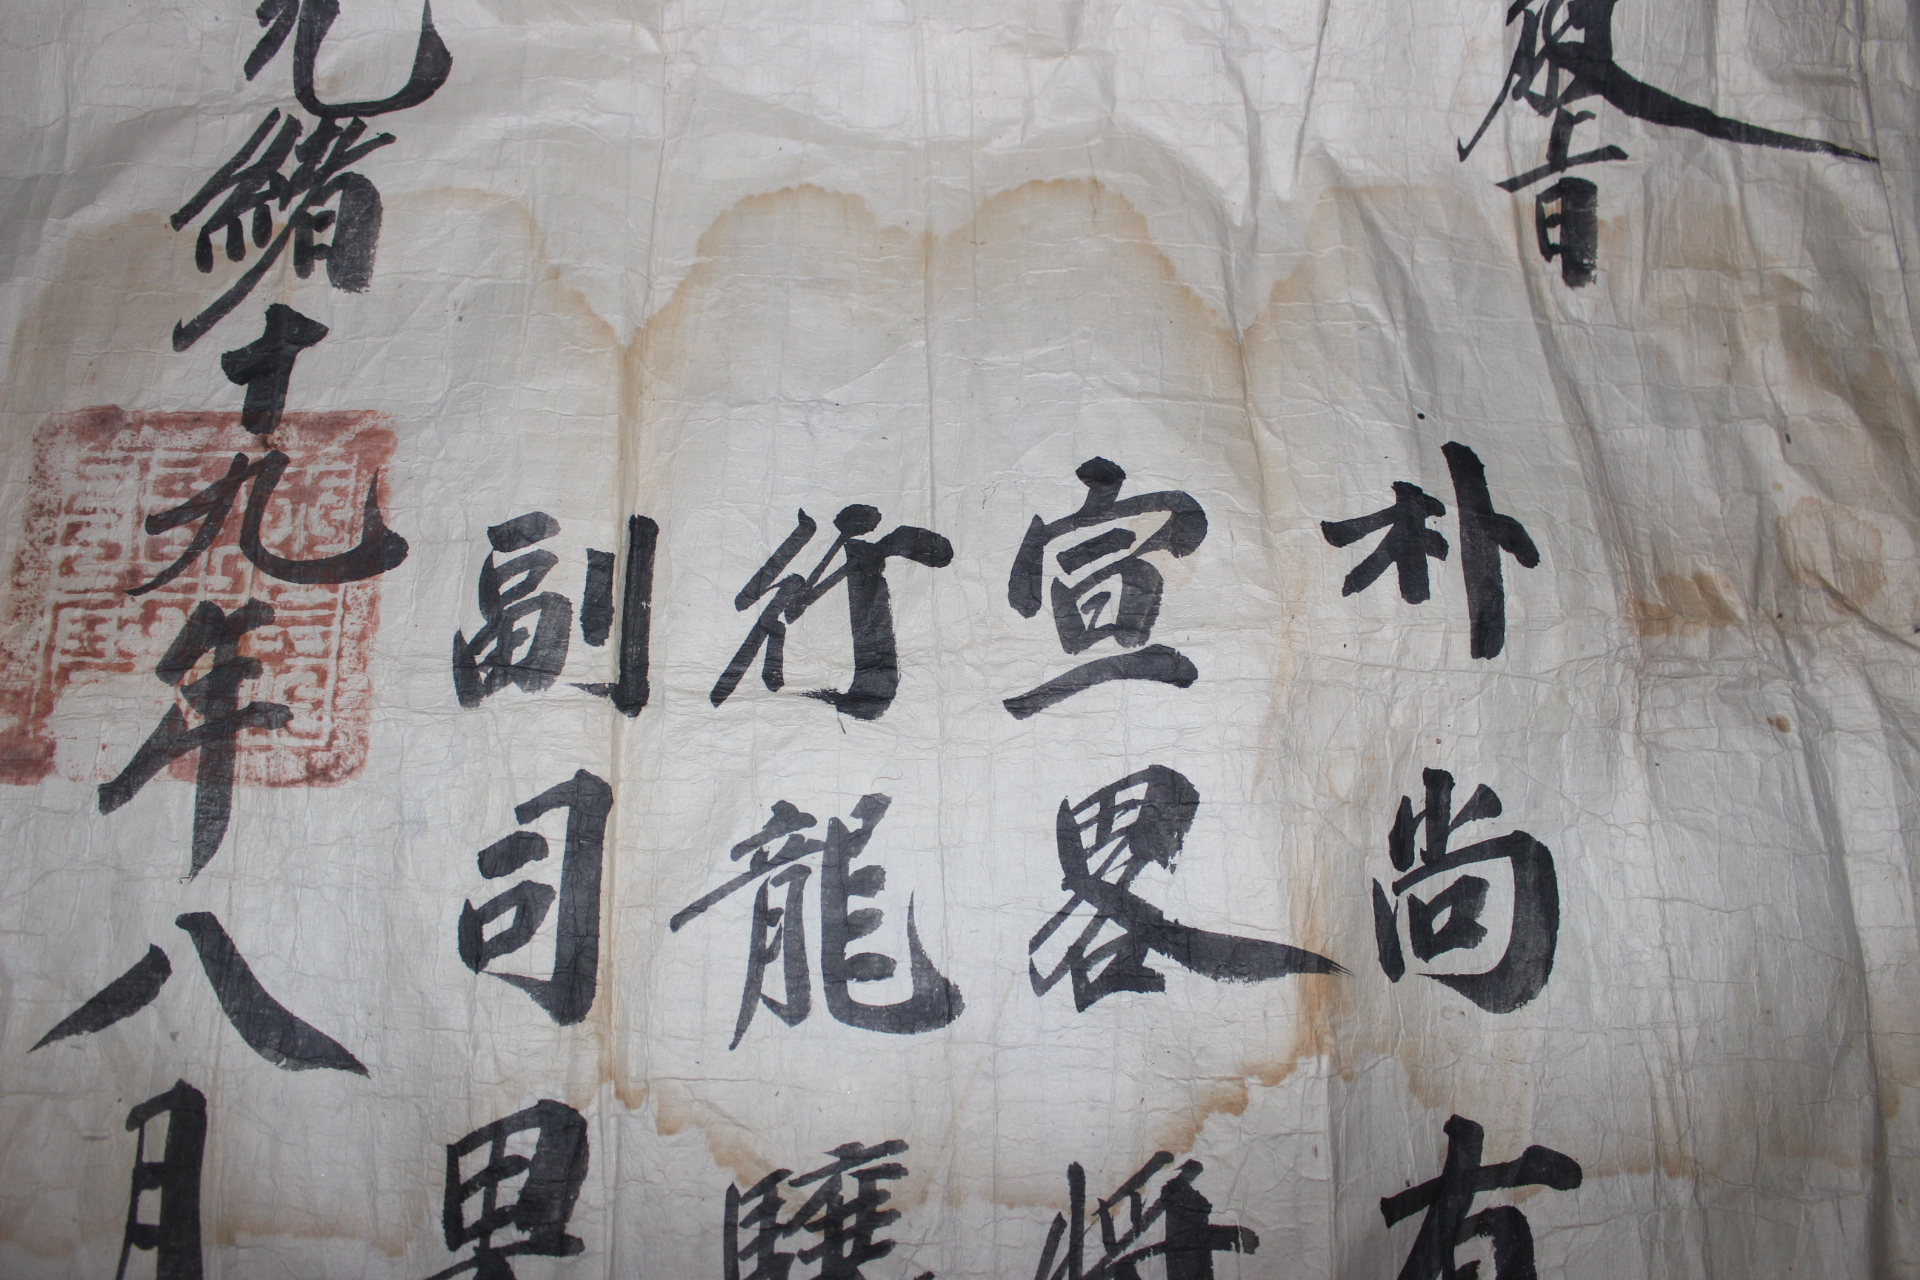 敎旨
朴尚有
宣畧將
行龍驤
副司果
光緒十九年八月